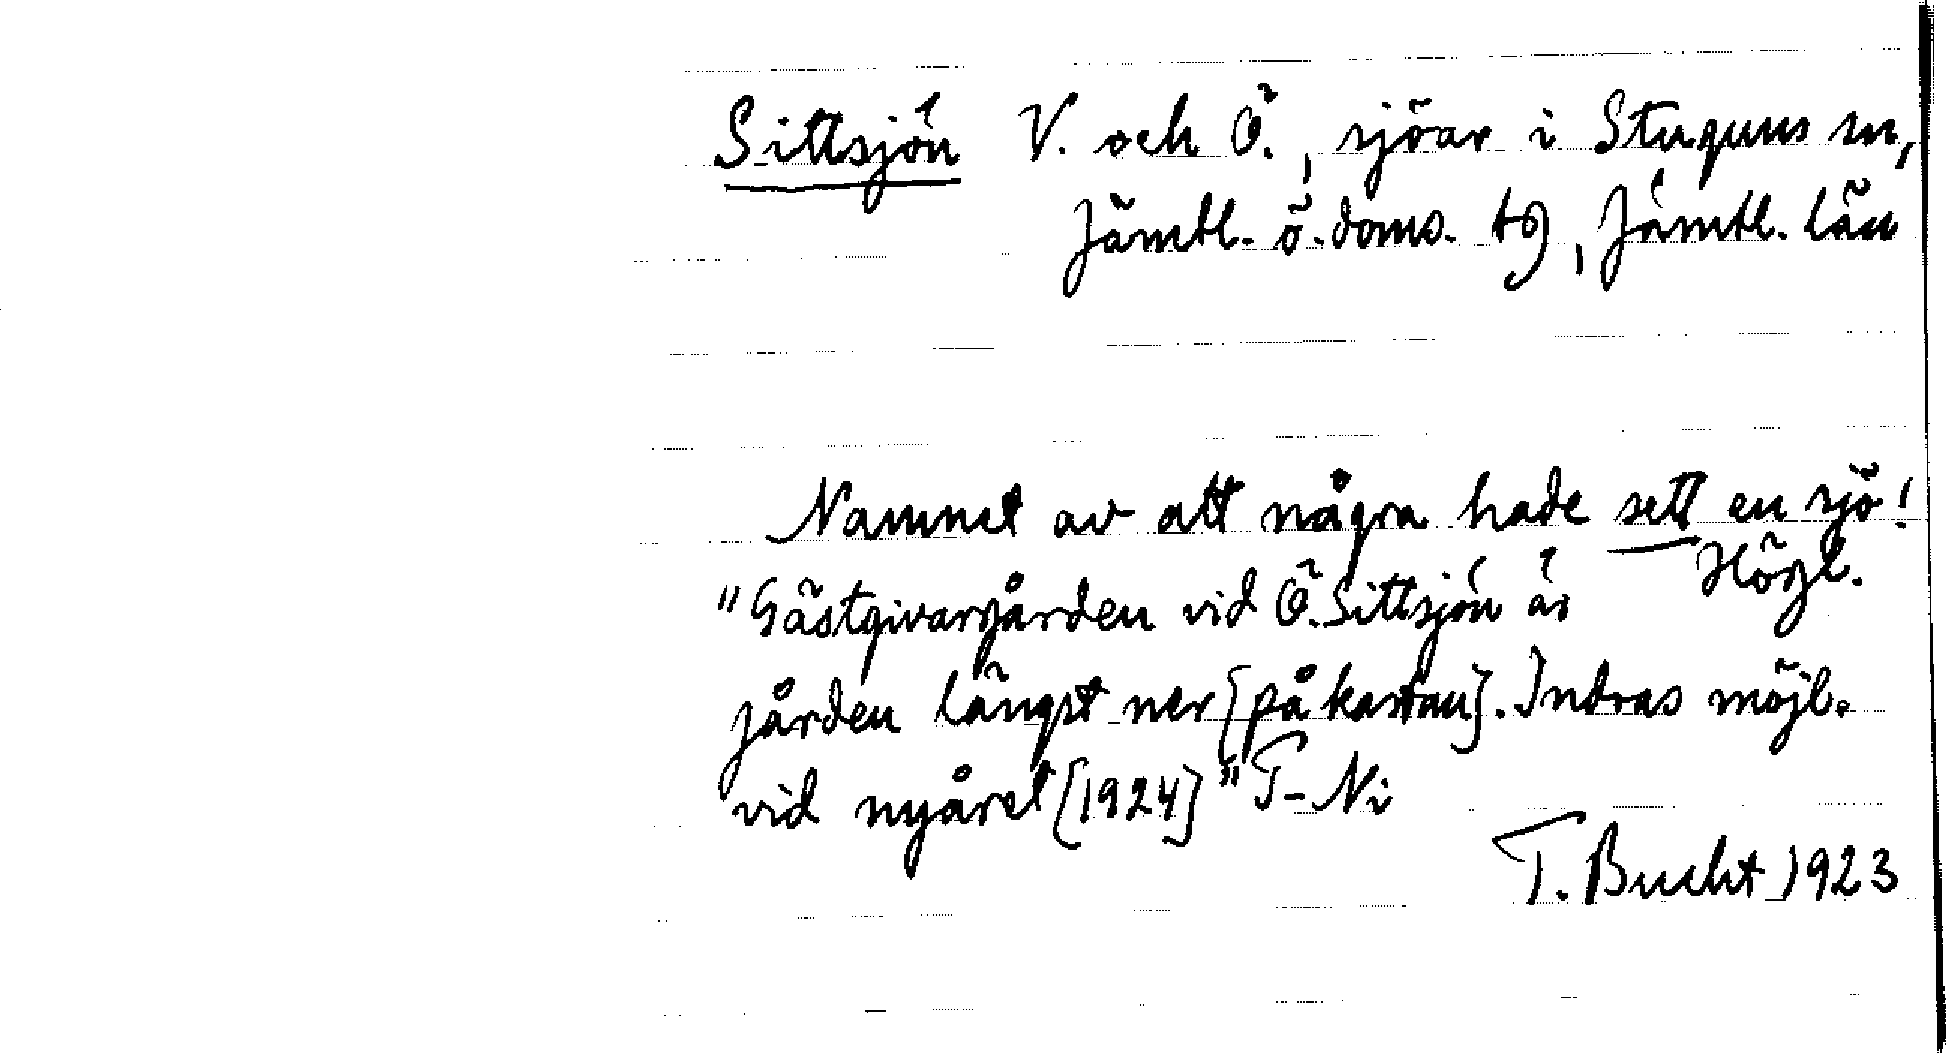 Sittsjön V. och Ö., sjöar i Stuguns sn,
Jämtl. ö. doms. tg, Jämtl. län
Namnet av att några hade sett en sjö!
Högl.
"Gästgivargården vid Ö. Sittsjön är
gården längst ner [på kartan]. Indras möjl.
vid nyåret [1924]" T-Ni
T. Bucht 1923